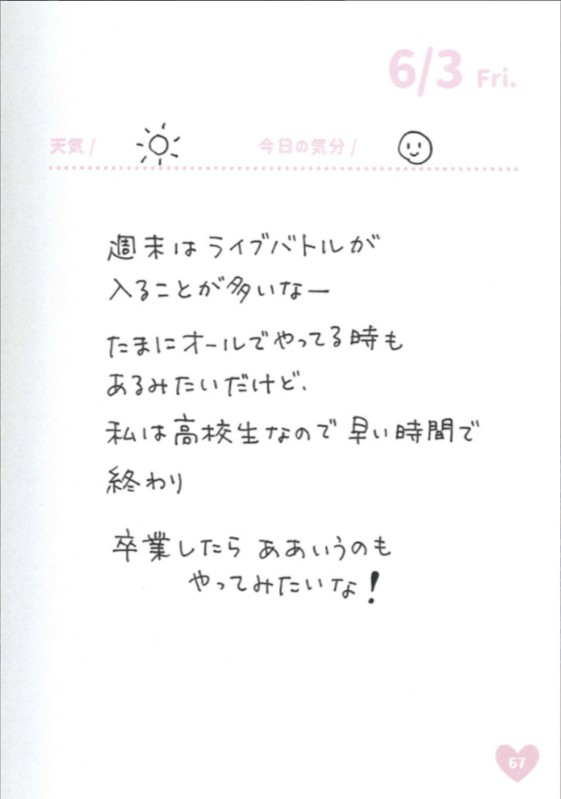 6/3 Fri.
天気 / 今日の気分 /
週末はライブバトルが
入ることが多いなー
たまにオールでやってる時も
あるみたいだけど、
私は高校生なので早い時間で
終わり
卒業したらああいうのも
やってみたいな!
67